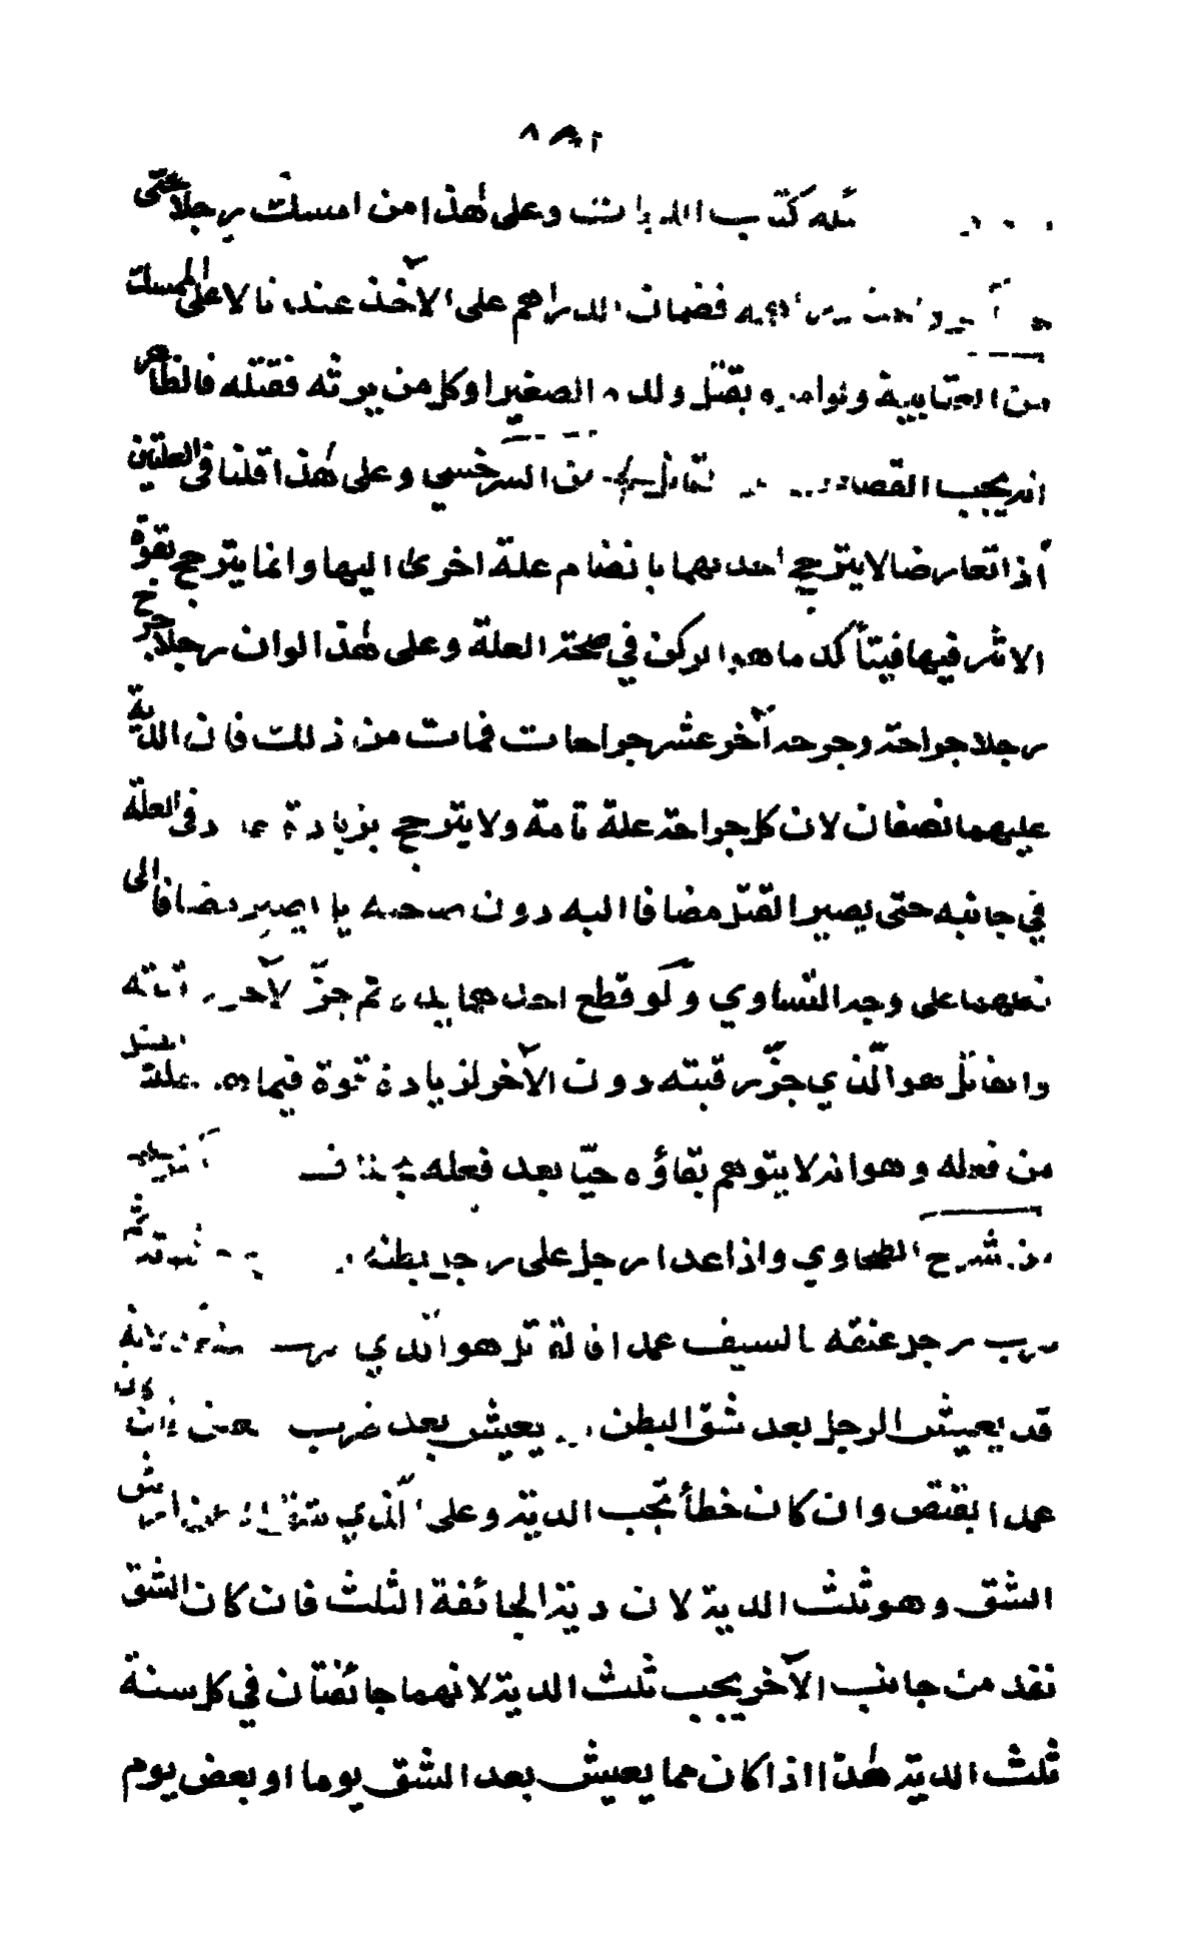 كتاب الديات وعلى هذا من امسك رجلا حتى
فضمان الدراهم على الآخذ عندنا لا على الممسك
من العتابية ولو امره بقتل ولده الصغير او كل من يرثه فقتله فالظاهر
انه يجب القصاص من السرخسي وعلى هذا قلنا فى العلتين
اذا تعارضا لا يترجح احدىهما بانضمام علة اخرى اليها وانما يترجح بقوة
الاثر فيها فيتأكد ما هو الركن في صحة العلة وعلى هذا لو ان رجلا جرح
رجلا جراحة وجرحه آخر عشر جراحات فمات من ذلك فان الدية
عليهما نصفان لان كل جراحة علة تامة ولا يترجح بزيادة عدد فى العلة
في جانبه حتى يصير القتل مضافا اليه دون صاحبه بل يصير مضافا الى
فعلهما على وجه التساوي ولو قطع احدهما يده ثم جزّ الآخر رقبته
والقاتل هو الّذي جزّ رقبته دون الآخر لزيادة قوة فيما هو علة القتل
من فعله وهو انه لا يتوهم بقاؤه حيّا بعد فعله بخلاف
من شرح الطحاوي واذا عدا رجل على رجل بطنه
ضرب رجل عنقه بالسيف عمدا فالقاتل هو الذي ضرب عنقه لانه
قد يعيش الرجل بعد شق البطن يعيش بعد ضرب العنق فان كان
عمدا يقتص وان كان خطأ تجب الدية وعلى الّذي شق ارش
الشق وهو ثلث الدية لان دية الجائفة الثلث فان كان الشق
نفذ من جانب الآخر يجب ثلث الدية لانهما جائفتان في كل سنة
ثلث الدية هذا اذا كان مما يعيش بعد الشق يوما او بعض يوم